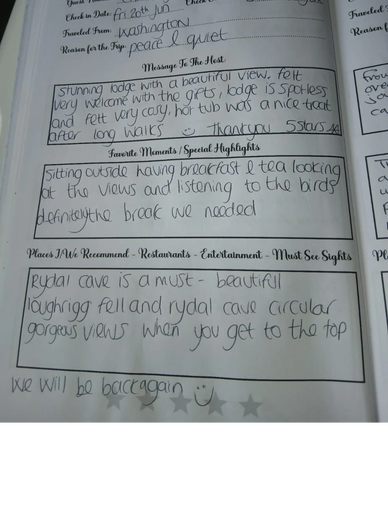 Check in Date: fri 20th Jun
Traveled From: Washington
Reason for the Trip: peace & quiet
Message To The Host
Stunning lodge with a beautiful view, felt
very welcome with the gifts, lodge is spotless
and felt very cosy, hot tub was a nice treat
after long walks :) Thankyou 5 stars
Favorite Moments / Special Highlights
Sitting outside having breakfast & tea looking
at the views and listening to the birds
definitely the break we needed
Places I/We Recommend - Restaurants - Entertainment - Must See Sights
Rydal cave is a must - beautiful
loughrigg fell and rydal cave circular
gorgeous views when you get to the top
we will be back again :)
Traveled
Reason f